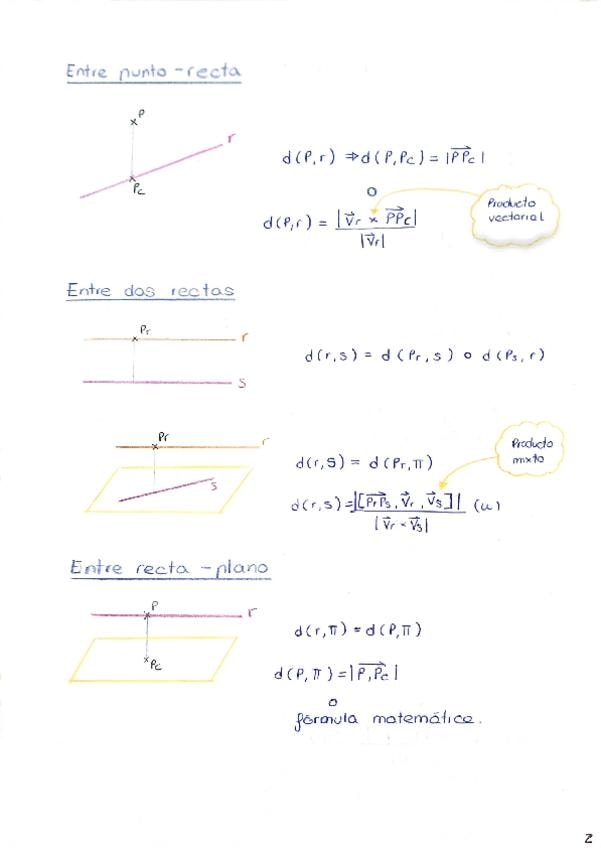 Entre punto-recta
P
r
Pc
d(P,r) ⇒ d(P,Pc) = |PPc|
o
Producto
vectorial
d(P,r) = |v⃗r × PPc| / |v⃗r|
Entre dos rectas
Pr
r
s
d(r,s) = d(Pr,s) o d(Ps,r)
Pr
r
s
Producto
mixto
d(r,s) = d(Pr,π)
d(r,s) = |[PrPs, v⃗r, v⃗s]| / |v⃗r × v⃗s| (u)
Entre recta-plano
P
r
Pc
d(r,π) = d(P,π)
d(P,π) = |P,Pc|
o
fórmula matemática.
2